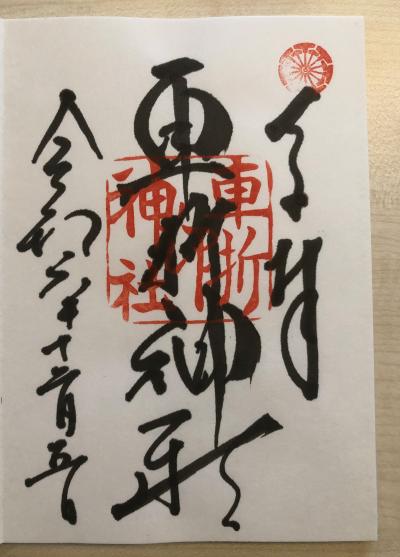 奉拝
車折神社
車折
神社
令和六年十二月五日